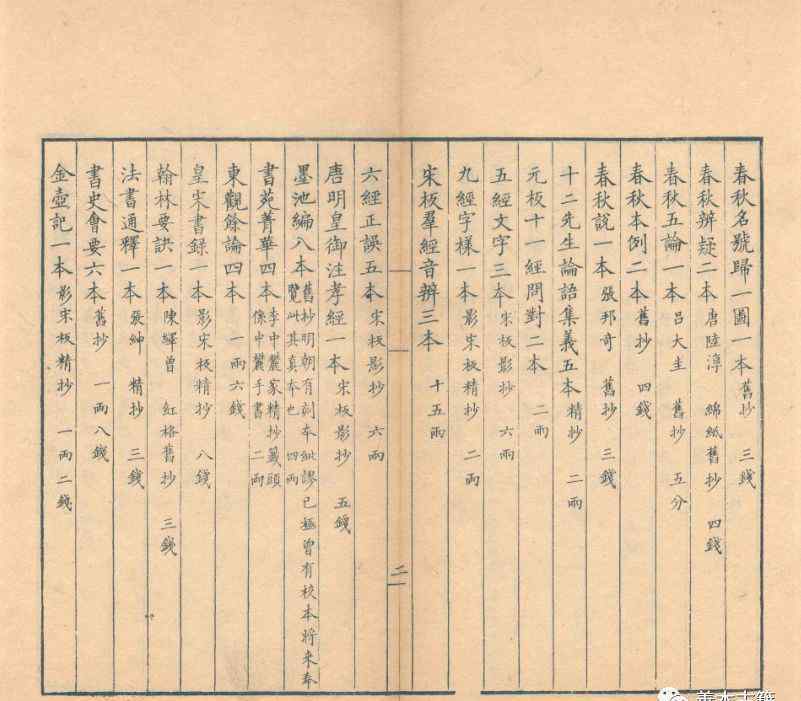 春秋名號歸一圖一本 舊抄 三錢
春秋辨疑二本 唐陸淳 綿紙舊抄 四錢
春秋五論一本 呂大圭 舊抄 五分
春秋本例二本 舊抄 四錢
春秋說一本 張邦奇 舊抄 三錢
十二先生論語集義五本 精抄 二兩
元板十一經問對二本 二兩
五經文字三本 宋板影抄 六兩
九經字樣一本 影宋板精抄 二兩
宋板羣經音辨三本 十五兩
二
六經正誤五本 宋板影抄 六兩
唐明皇御注孝經一本 宋板影抄 五錢
墨池編八本 舊抄明朝有刻本紕謬已極曾有校本將來奉覽此其真本也 四兩
書苑菁華四本 李中麓家精抄籤頭係中麓手書 二兩
東觀餘論四本 一兩六錢
皇宋書錄一本 影宋板精抄 八錢
翰林要訣一本 陳繹曾 紅格舊抄 三錢
法書通釋一本 張紳 精抄 三錢
書史會要六本 舊抄 一兩八錢
金壺記一本 影宋板精抄 一兩二錢
善本古籍